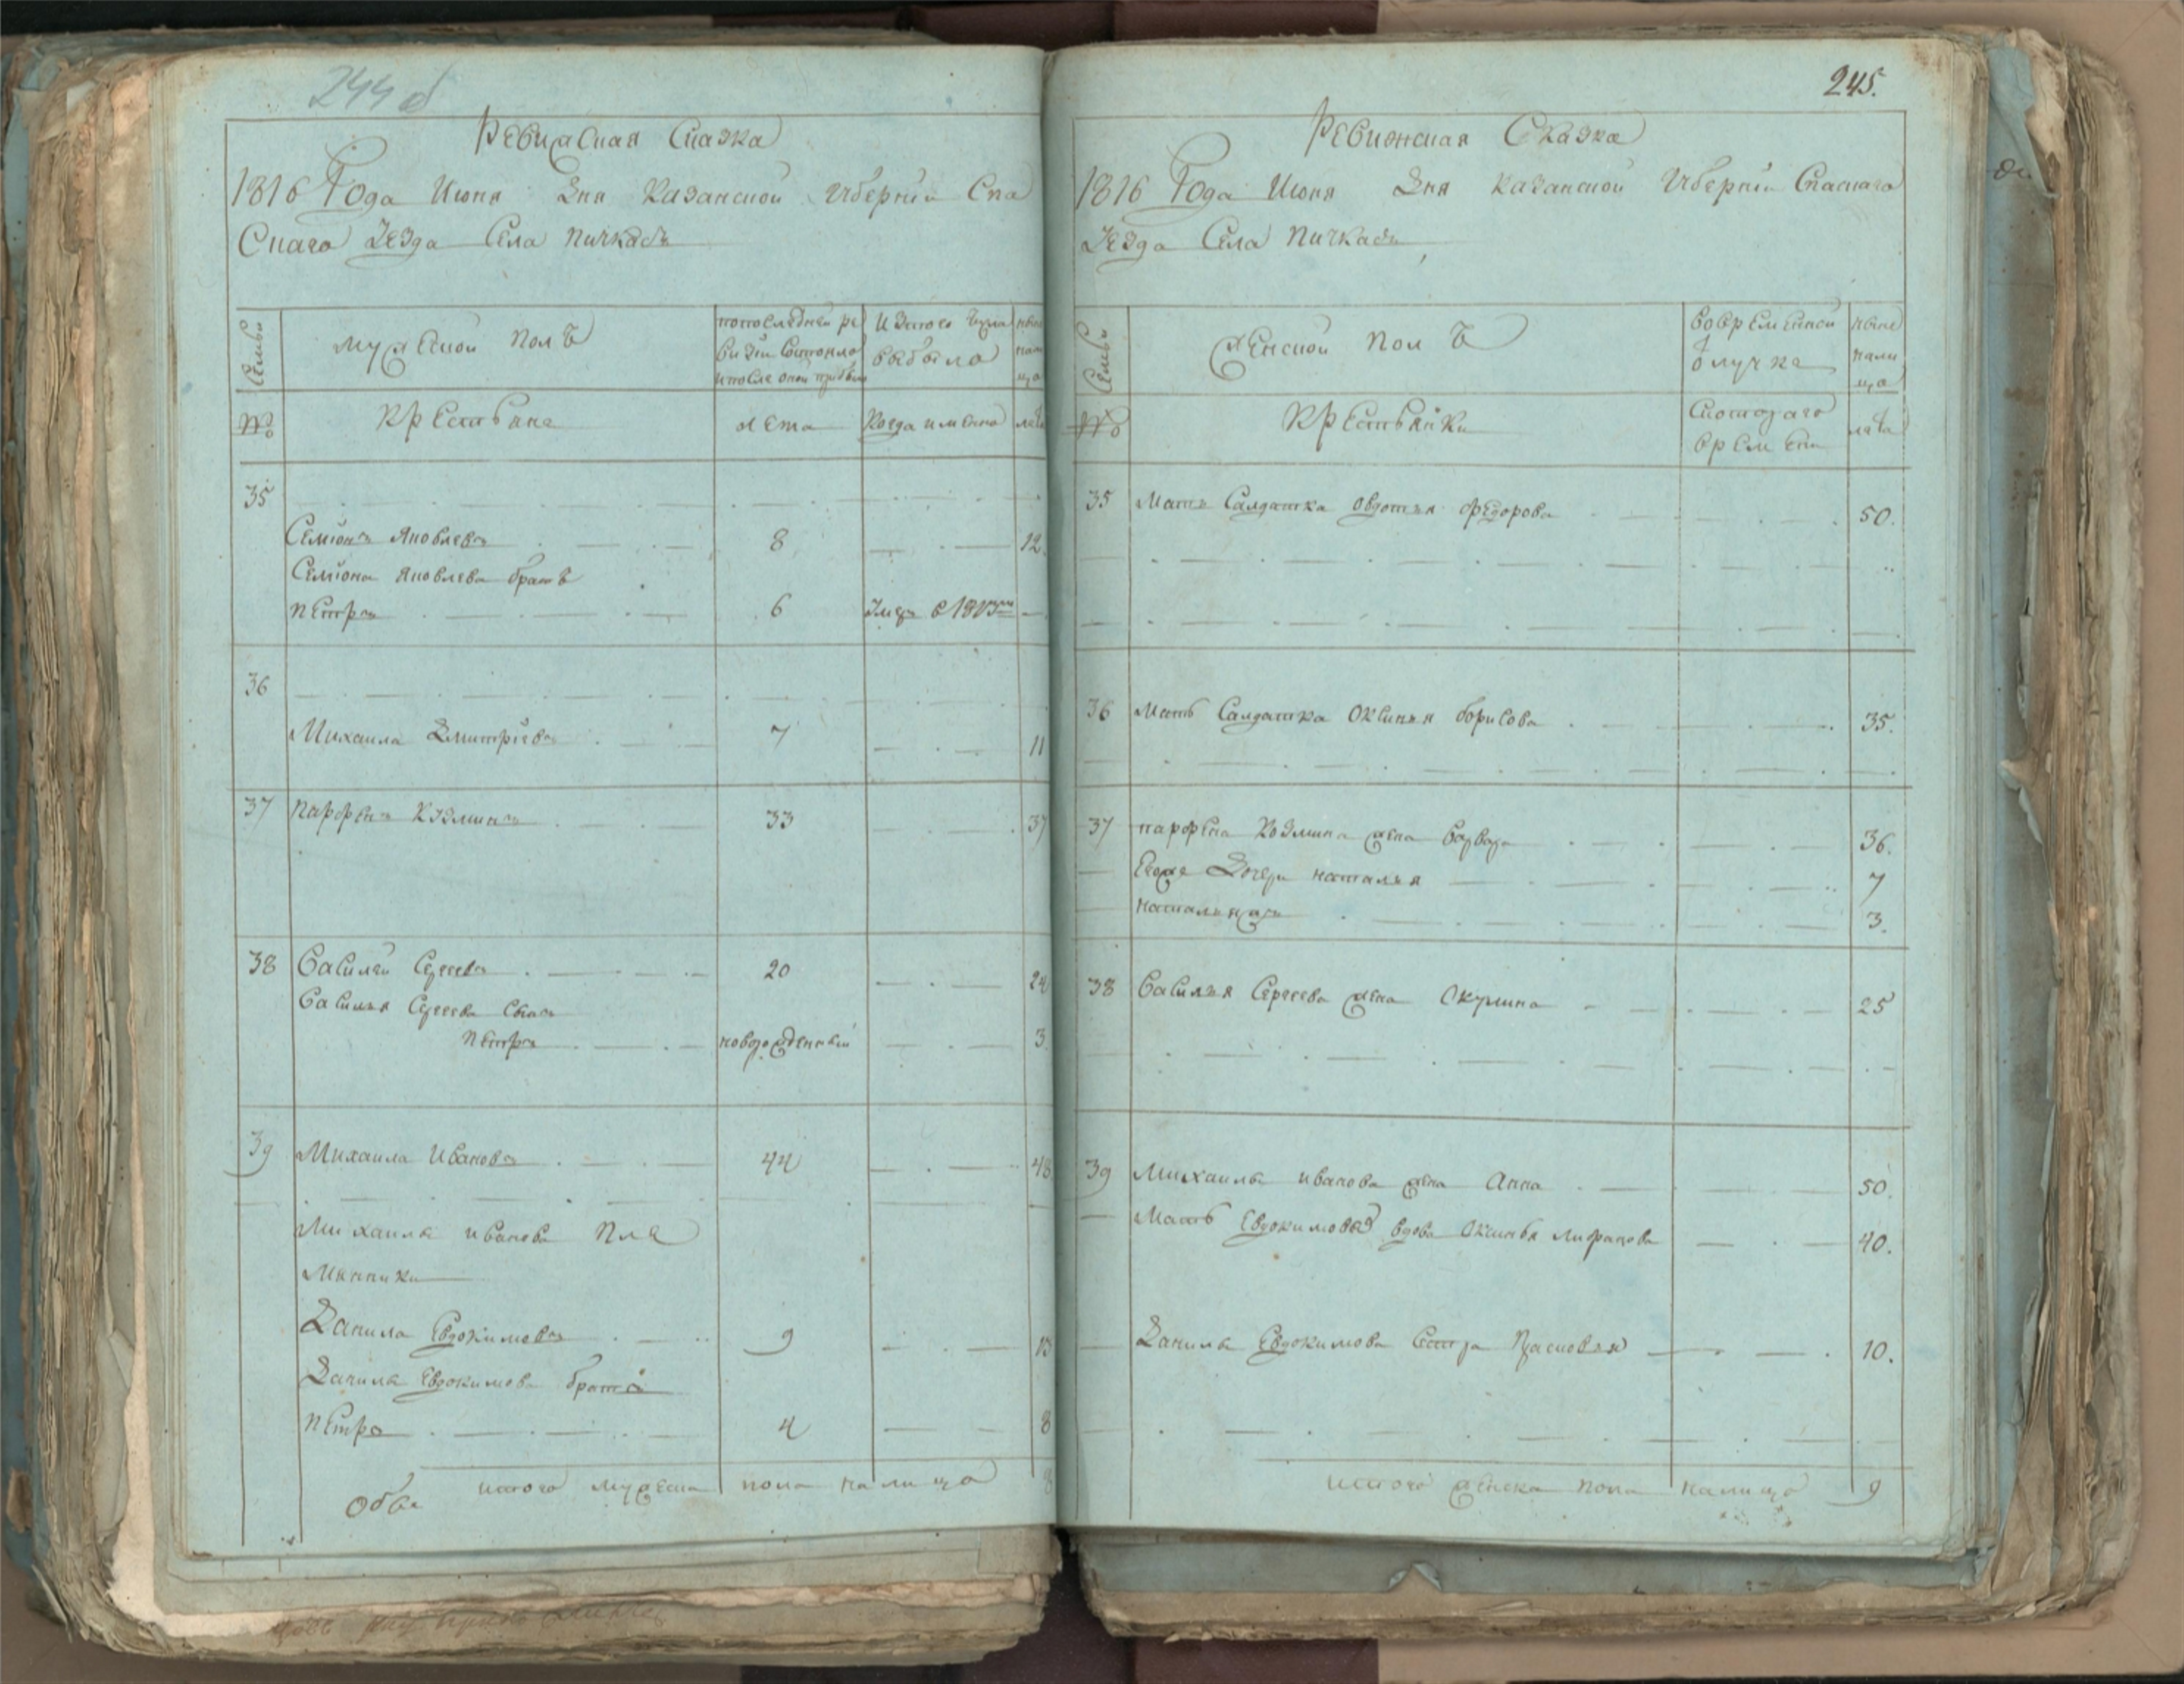 244 об
Ревижская Сказка
1816 Года Июня Дня Казанской Губернии Спа
Скаго Уезда Села Пичкасъ
Семьи
мужеской полъ
по последней ре
визии состояло
и после оной прибыло
Из того числа
выбыло
ныне
нали
цо
№
крестьяне
лета
Когда именно
лета
35
Семионъ Яковлевъ 8 12
Семиона Яковлева братъ
петръ 6 Умеръ в 1813м
36
Михаила Дмитриевъ 7 11
37 парфенъ Козминъ 33 37
38 Василей Сергеевъ 20 24
Василья Сергеева Сынъ
петръ новорожденный 3
39 Михаила Ивановъ 44 48
Михаилы иванова пле
мянники
Данила Евдокимовъ 9 13
Данилы Евдокимова братъ
петръ 4 8
итого мужеска пола на лицо 8
245.
Ревижская Сказка
1816 Года Июня Дня Казанской Губернии Спаскаго
Уезда Села Пичкасъ
Семьи
Женской полъ
во временной
отлучке
ныне
нали
цо
№
крестьянки
С котораго
времени
лета
35 Мать Салдатка Овдотья Федорова 50.
36 Мать Салдатка Оксинья борисова 35.
37 парфена Козмина жена варвара 36.
Евоже Дочери наталья 7
натальяжъ 3.
38 Василья Сергеева жена Окулина 25
39 Михаилы иванова жена Анна 50.
Мать Евдокимовыхъ вдова Оксинья 40.
Данилы Евдокимова Сестра Прасковья 10.
итого женска пола налицо 9